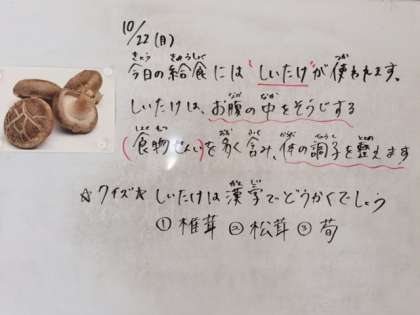 10/22(月)
今日の給食には"しいたけ"が使われます。
しいたけは、お腹の中をそうじする
(食物せんい)を多く含み、体の調子を整えます
☆クイズ☆ しいたけは漢字でどうかくでしょう
①椎茸 ②松茸 ③筍